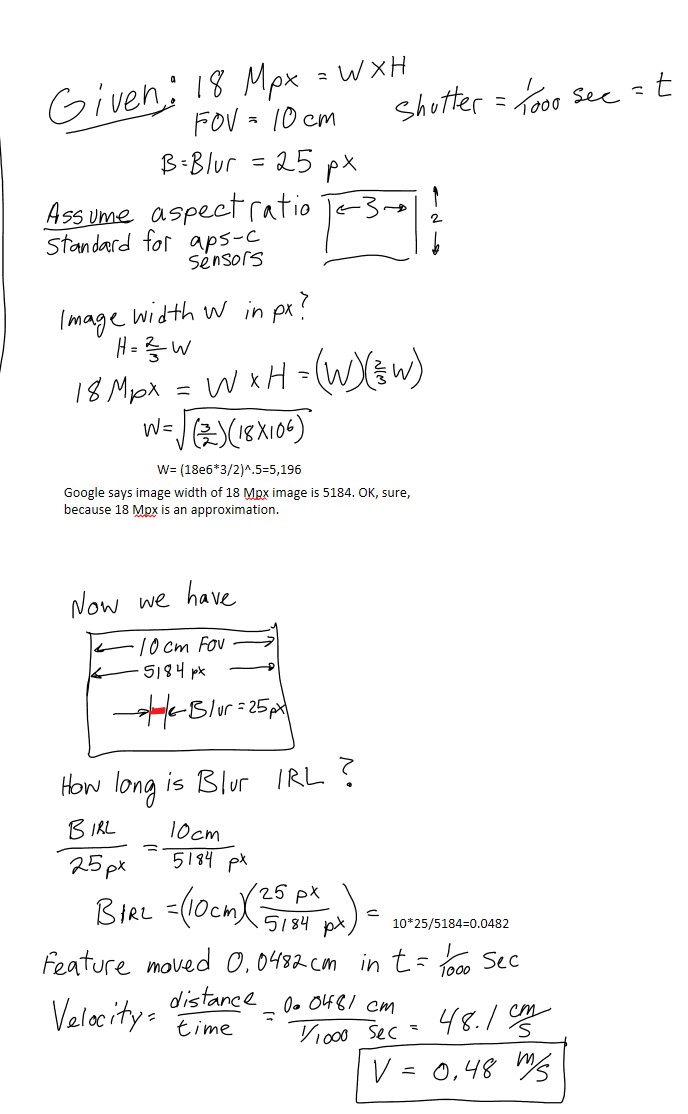 Given: 18 Mpx = W X H
FOV = 10 cm
Shutter = 1/1000 sec = t
B=Blur = 25 px
Assume aspect ratio
←3→
↑ 2 ↓
Standard for aps-c
sensors
Image width W in px?
H = 2/3 W
18 Mpx = W x H = (W)(2/3 W)
W = √(3/2)(18X10⁶)
W= (18e6*3/2)^.5=5,196
Google says image width of 18 Mpx image is 5184. OK, sure,
because 18 Mpx is an approximation.
Now we have
← 10 cm FOV →
← 5184 px →
→ ← Blur = 25 px
How long is Blur IRL ?
B IRL / 25 px = 10cm / 5184 px
BIRL = (10cm)(25 px / 5184 px) =
10*25/5184=0.0482
Feature moved 0.0482 cm in t = 1/1000 Sec
Velocity = distance / time = 0.0481 cm / 1/1000 sec = 48.1 cm/s
V = 0.48 m/s